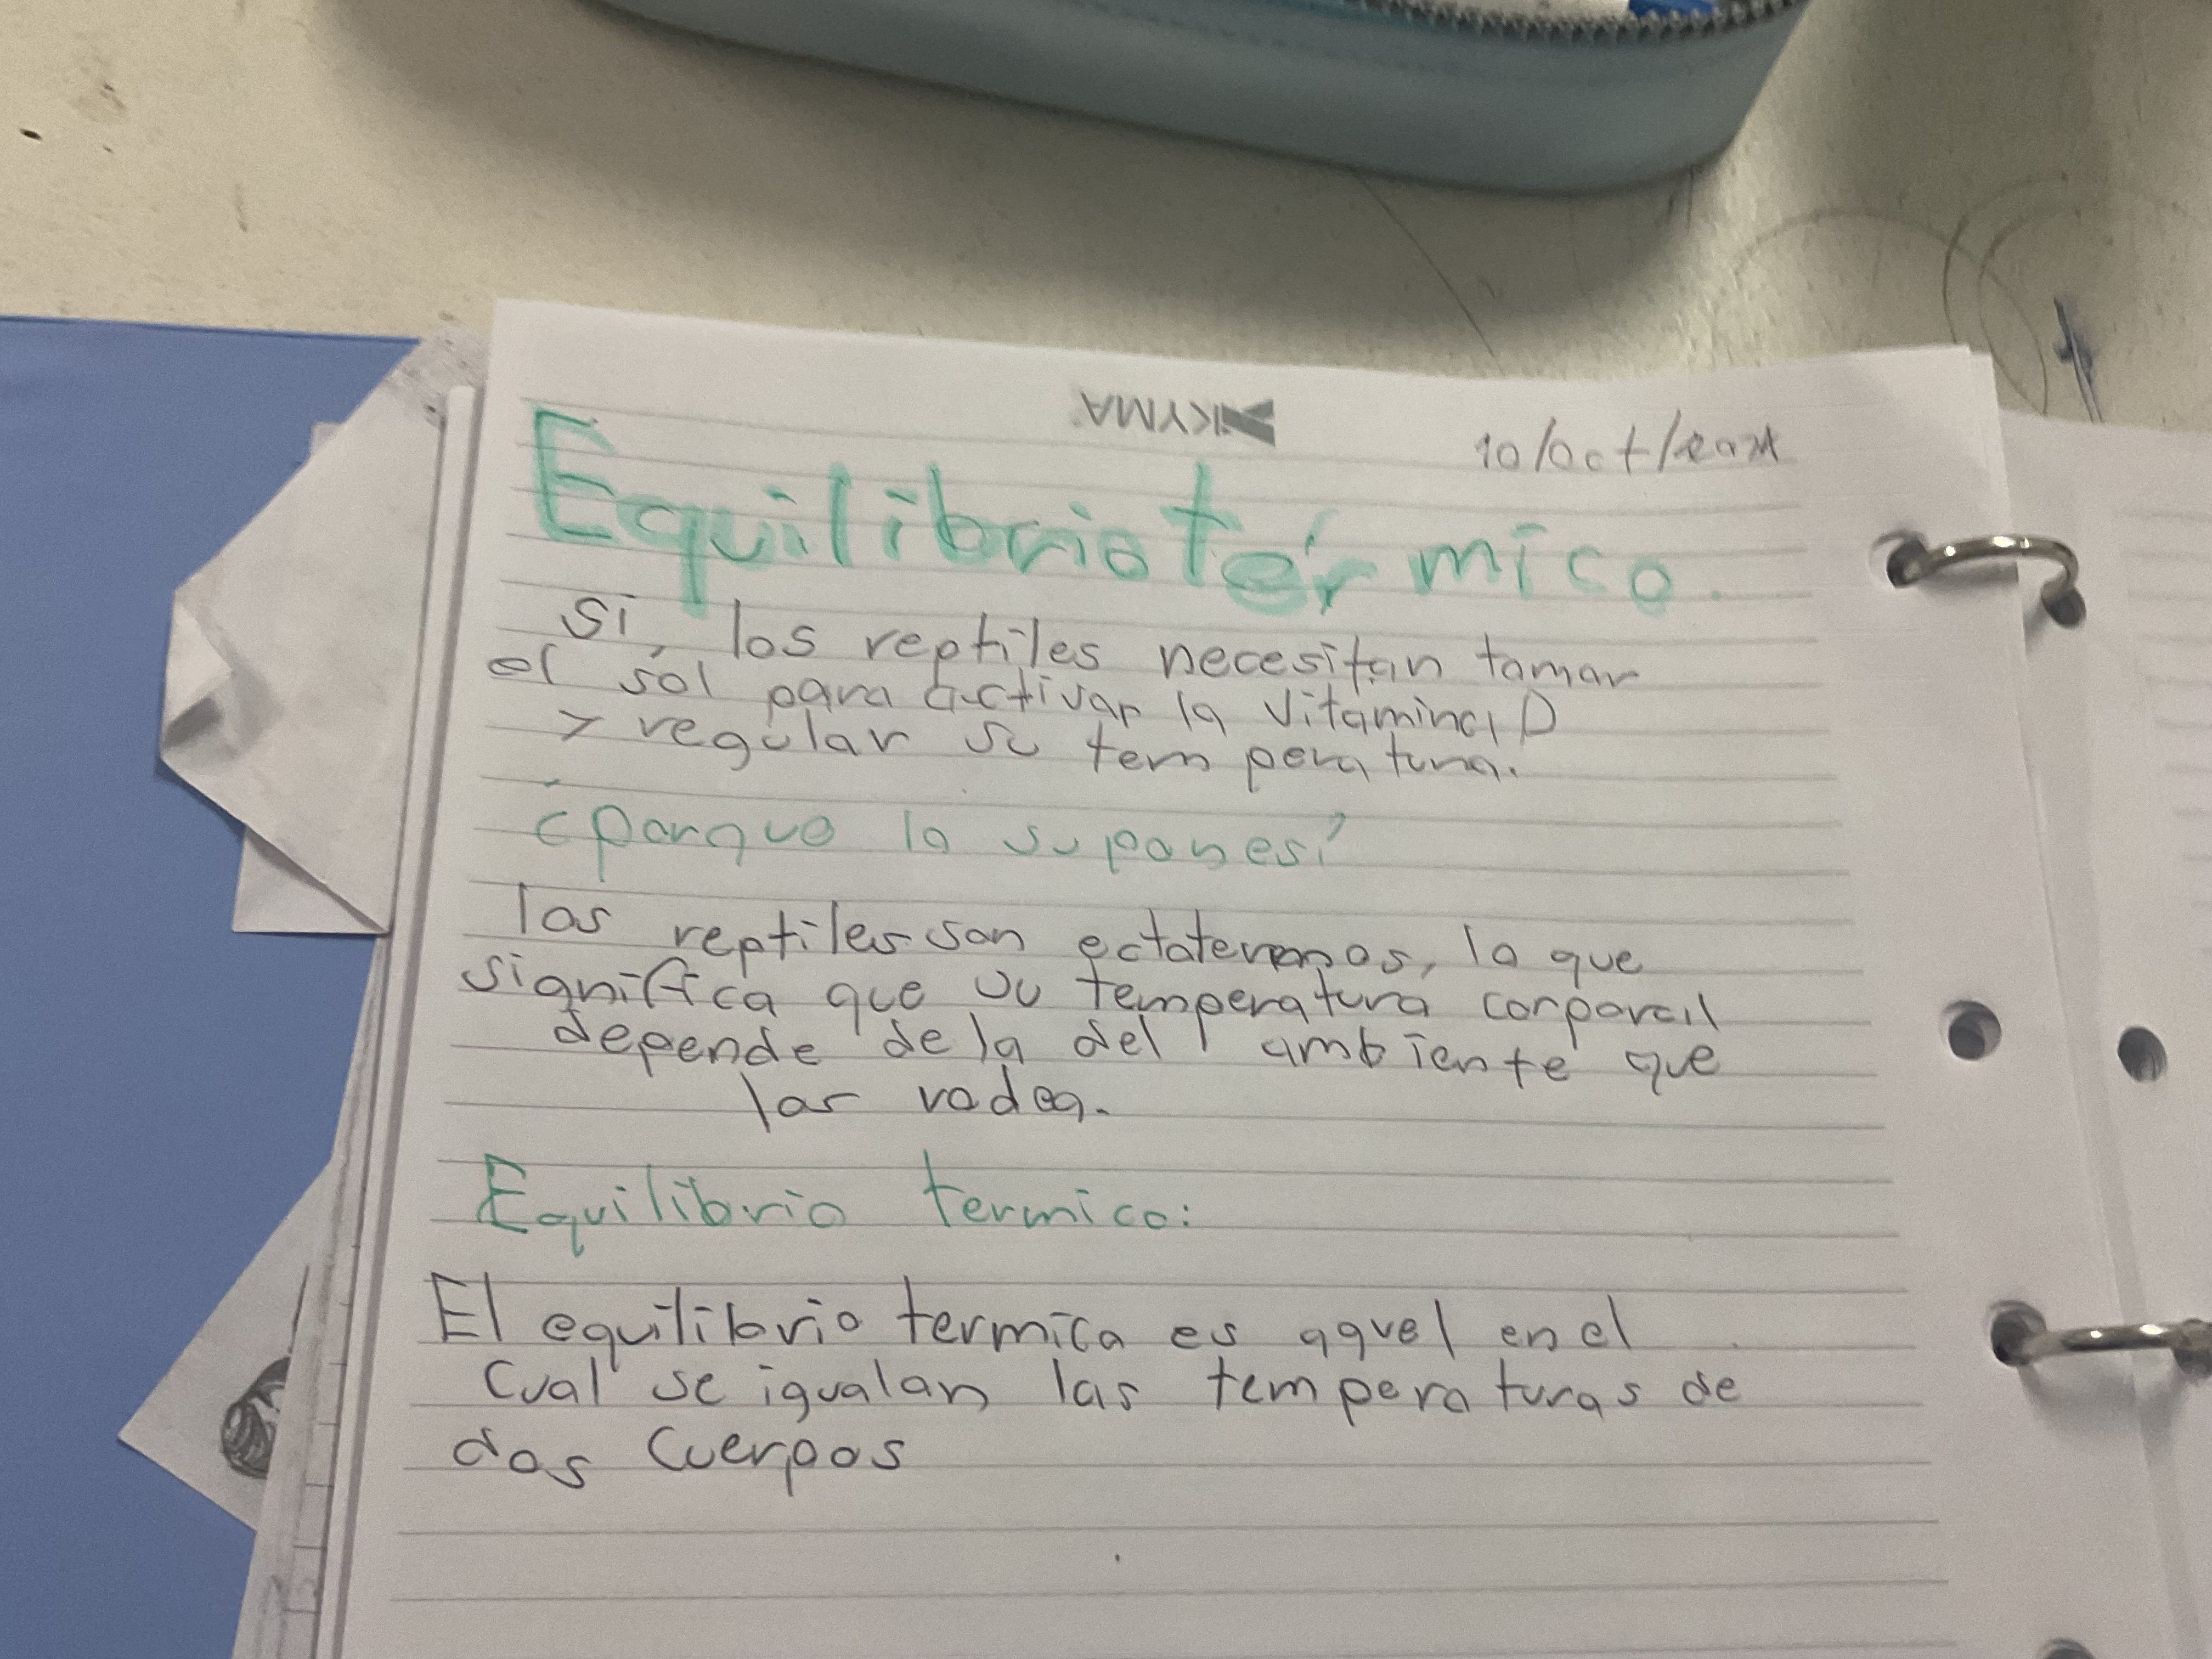 KYMA
10/oct/2024
Equilibrio térmico.
Si, los reptiles necesitan tomar
el sol para activar la vitamina D
y regular su temperatura.
¿Porque lo supones?
los reptiles son ectotermos, lo que
significa que su temperatura corporal
depende de la del ambiente que
los rodea.
Equilibrio termico:
El equilibrio termico es aquel en el
cual se igualan las temperaturas de
dos cuerpos